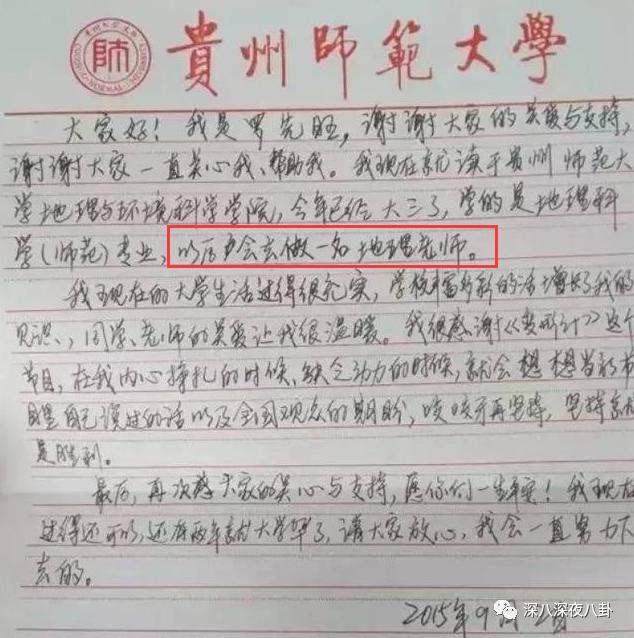 貴州師範大學
大家好！我是罗先旺，谢谢大家的关爱与支持，
谢谢大家一直关心我、帮助我。我现在就读于贵州师范大
学地理与环境科学学院，今年已经大三了，学的是地理科
学(师范)专业，以后会去做一名地理老师。
我现在的大学生活过得很充实，学校的活增长了我的
见识、同学、老师的关爱让我很温暖。我很感谢《变形计》这个
节目，在我内心挣扎的时候，缺乏动力的时候，就会想想当初节
目里自己说过的话以及全国观众的期盼，咬咬牙再坚持，坚持就
是胜利。
最后，再次感大家的关心与支持，愿你们一生平安！我现在
过得还可以，还有两年就大学毕了，请大家放心，我会一直努力下
去的。
2015年9月
深八深夜八卦